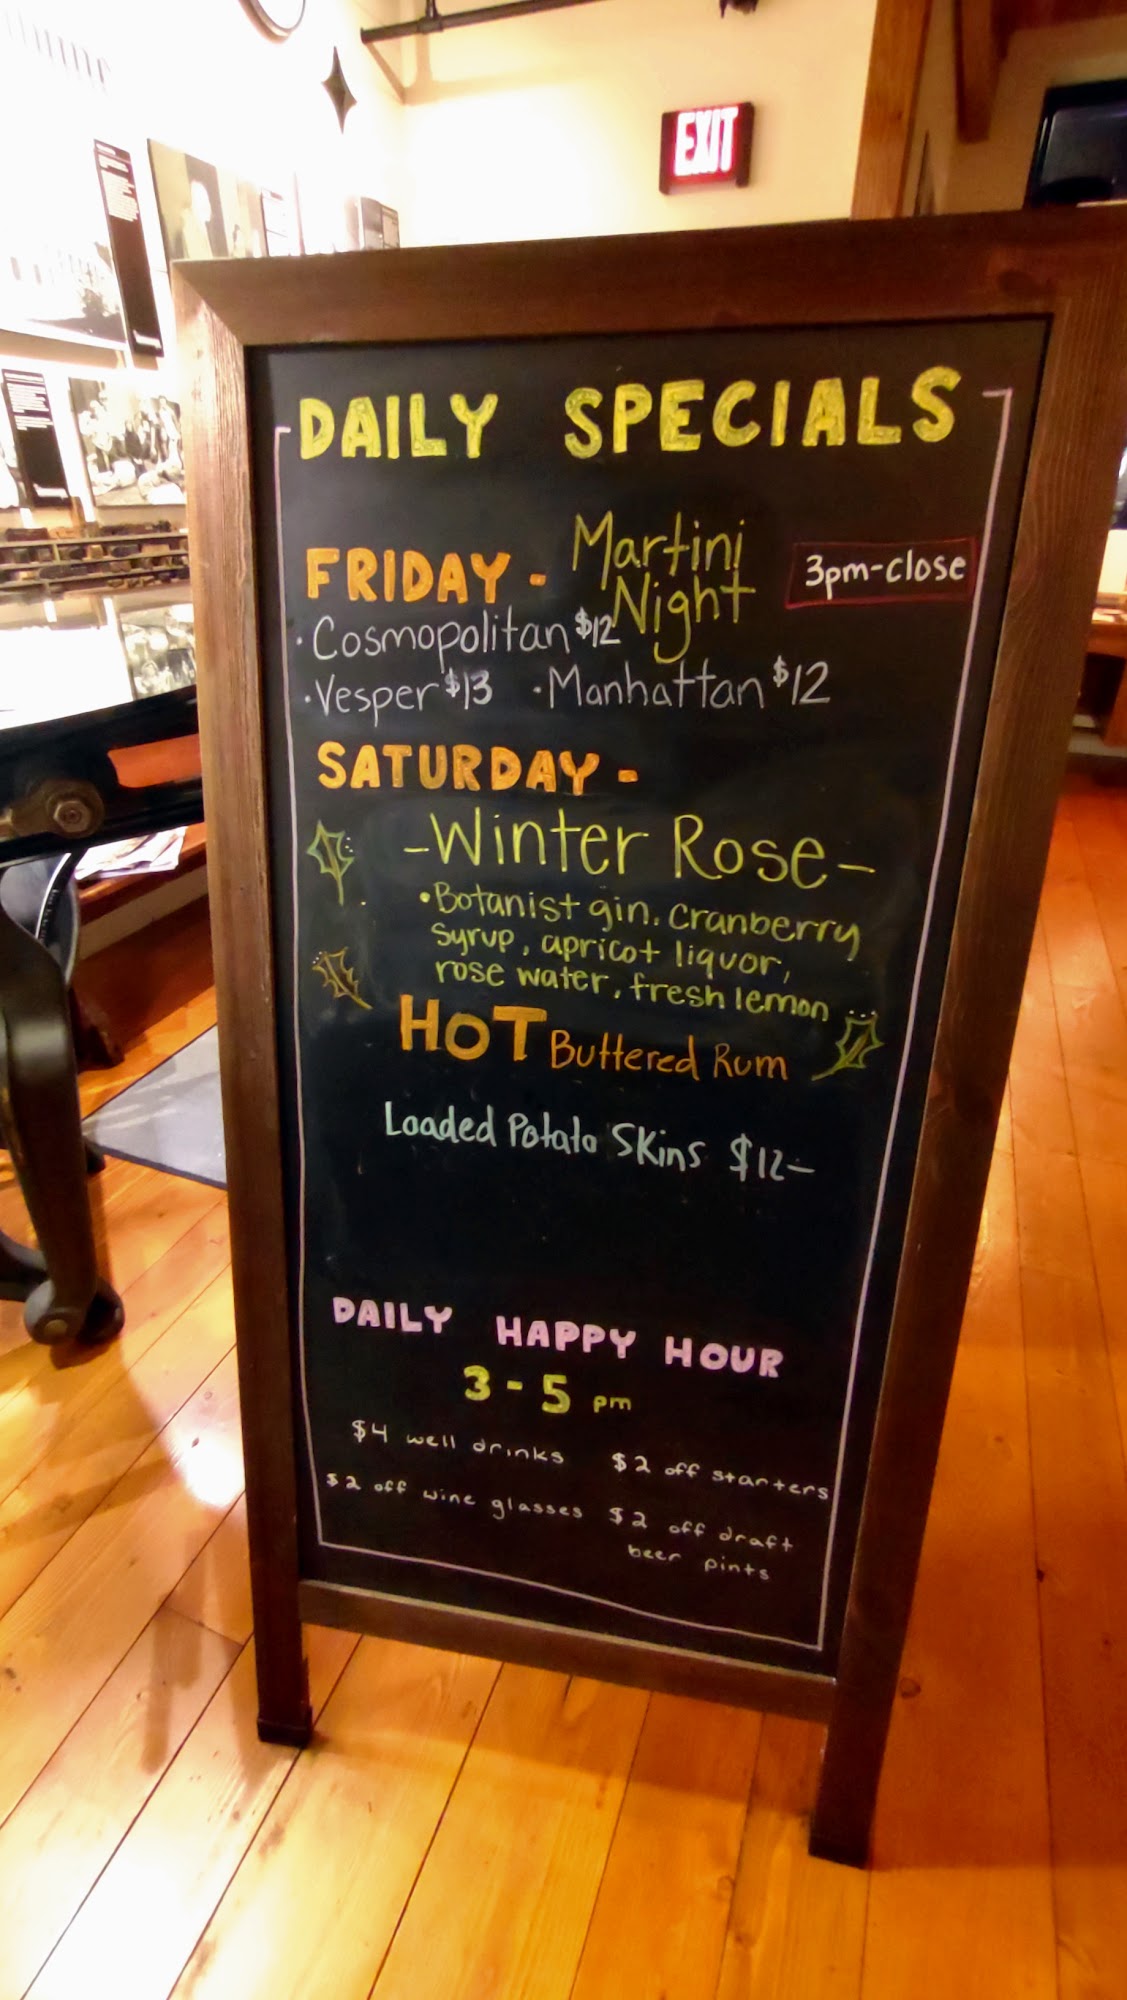 EXIT
DAILY SPECIALS
FRIDAY - Martini Night 3pm-close
· Cosmopolitan $12
· Vesper $13 · Manhattan $12
SATURDAY -
- Winter Rose -
• Botanist gin, cranberry
syrup, apricot liquor,
rose water, fresh lemon ...
HOT Buttered Rum
Loaded Potato Skins $12-
DAILY HAPPY HOUR
3 - 5 pm
$4 well drinks $2 off starters
$2 off wine glasses $2 off draft
beer pints